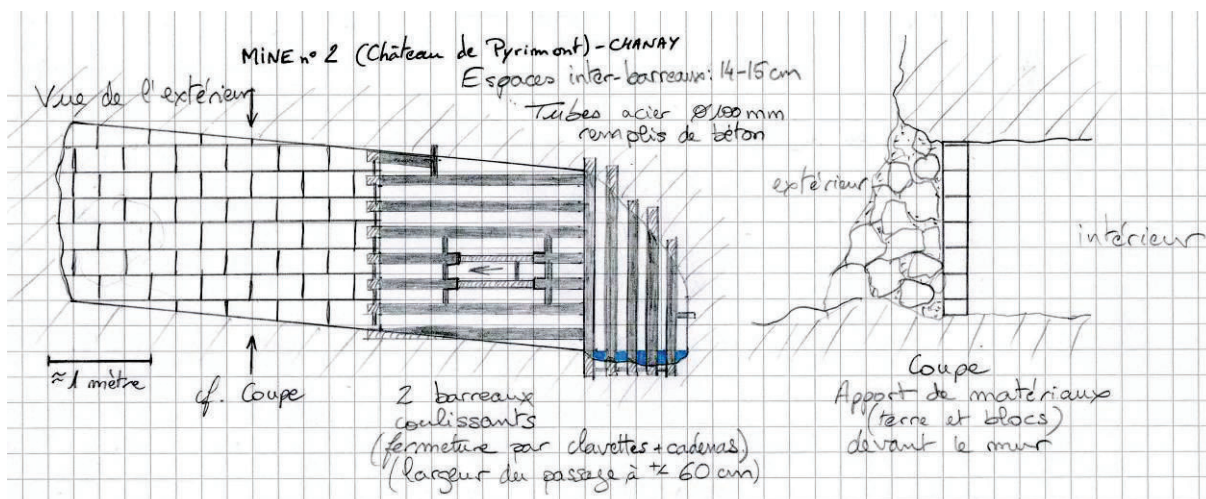 MINE n° 2 (Château de Pyrimont) - CHANAY
Espaces inter-barreaux: 14-15cm
Tubes acier Ø100mm
remplis de béton
Vue de l'extérieur
≈1 mètre
cf. Coupe
2 barreaux
coulissants
(fermeture par clavettes + cadenas)
(largeur du passage à +/- 60 cm)
extérieur
intérieur
Coupe
Apport de matériaux
(terre et blocs)
devant le mur